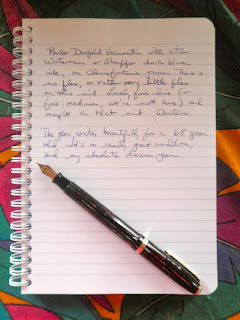 Parker Duofold Vacumatic with either
Waterman or Sheaffer dark blue
ink, on Clairefontaine paper. There's
no flex, or rather very little flex
on this nib. Lovely fine line (or
fine medium, we're not sure) and
maybe a 14ct nib.
The pen writes beautifully for a 65 year
old. It's in really great condition,
and my absolute dream pen